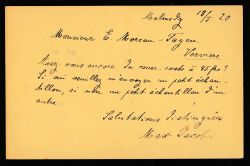 Malmedy 18/5 20
Monsieur E. Moreau - Fagen
Verviers
Avez vous encore du cover-coats à 45 frs?
Si oui veuillez m'envoyer un petit échan-
tillon, si non un petit échantillon d'un
autre.
Salutations distinguées
Max Jacob